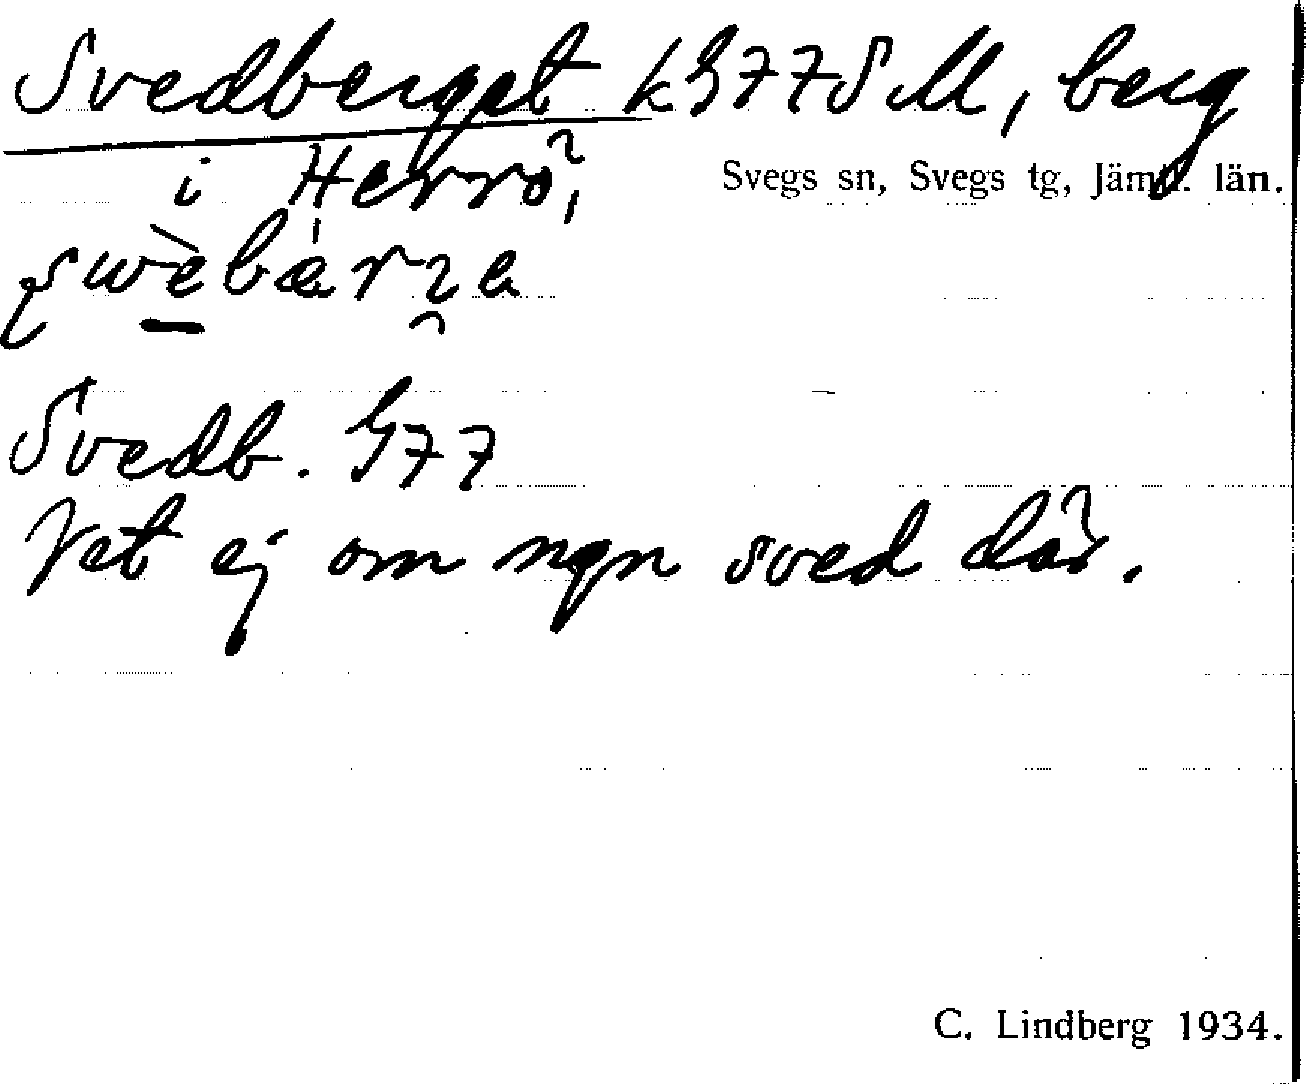 Svedberget k G77 S M, berg
i Herrö,
Svegs sn, Svegs tg, Jämtl. län.
Svedb. G77
Vet ej om ngn sved där.
C. Lindberg 1934.